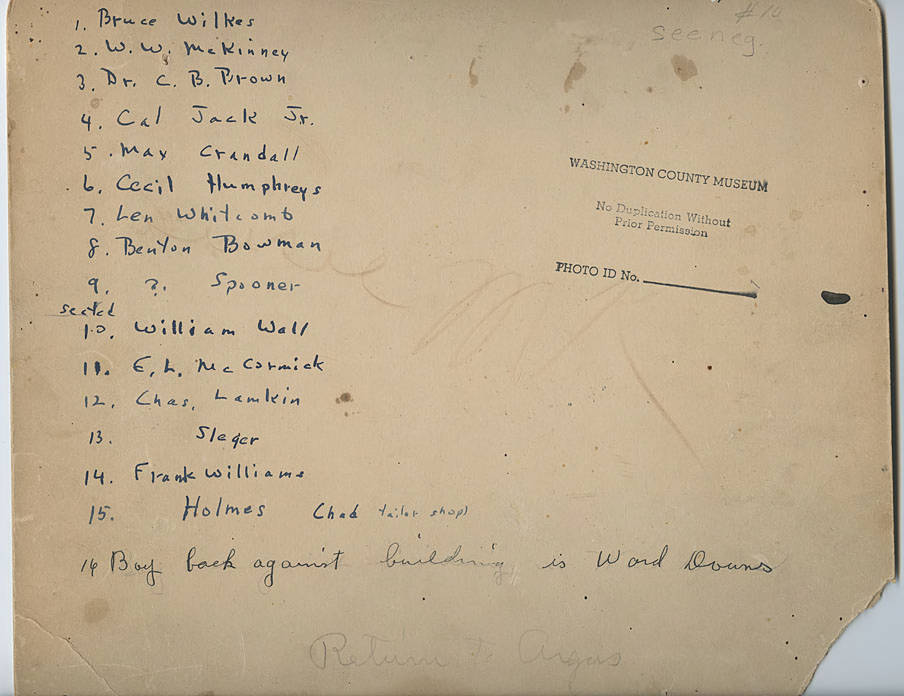 #10
see neg.
1. Bruce Wilkes
2. W. W. McKinney
3. Dr. C. B. Brown
4. Cal Jack Jr.
5. Max Crandall
6. Cecil Humphreys
7. Len Whitcomb
8. Benton Bowman
9. ? Spooner
seated
10. William Wall
11. E. L. McCormick
12. Chas. Lamkin
13. Sleger
14. Frank Williams
15. Holmes Chad tailor shop)
16 Boy back against building is Word Downs
Return to Argus
WASHINGTON COUNTY MUSEUM
No Duplication Without
Prior Permission
PHOTO ID No.